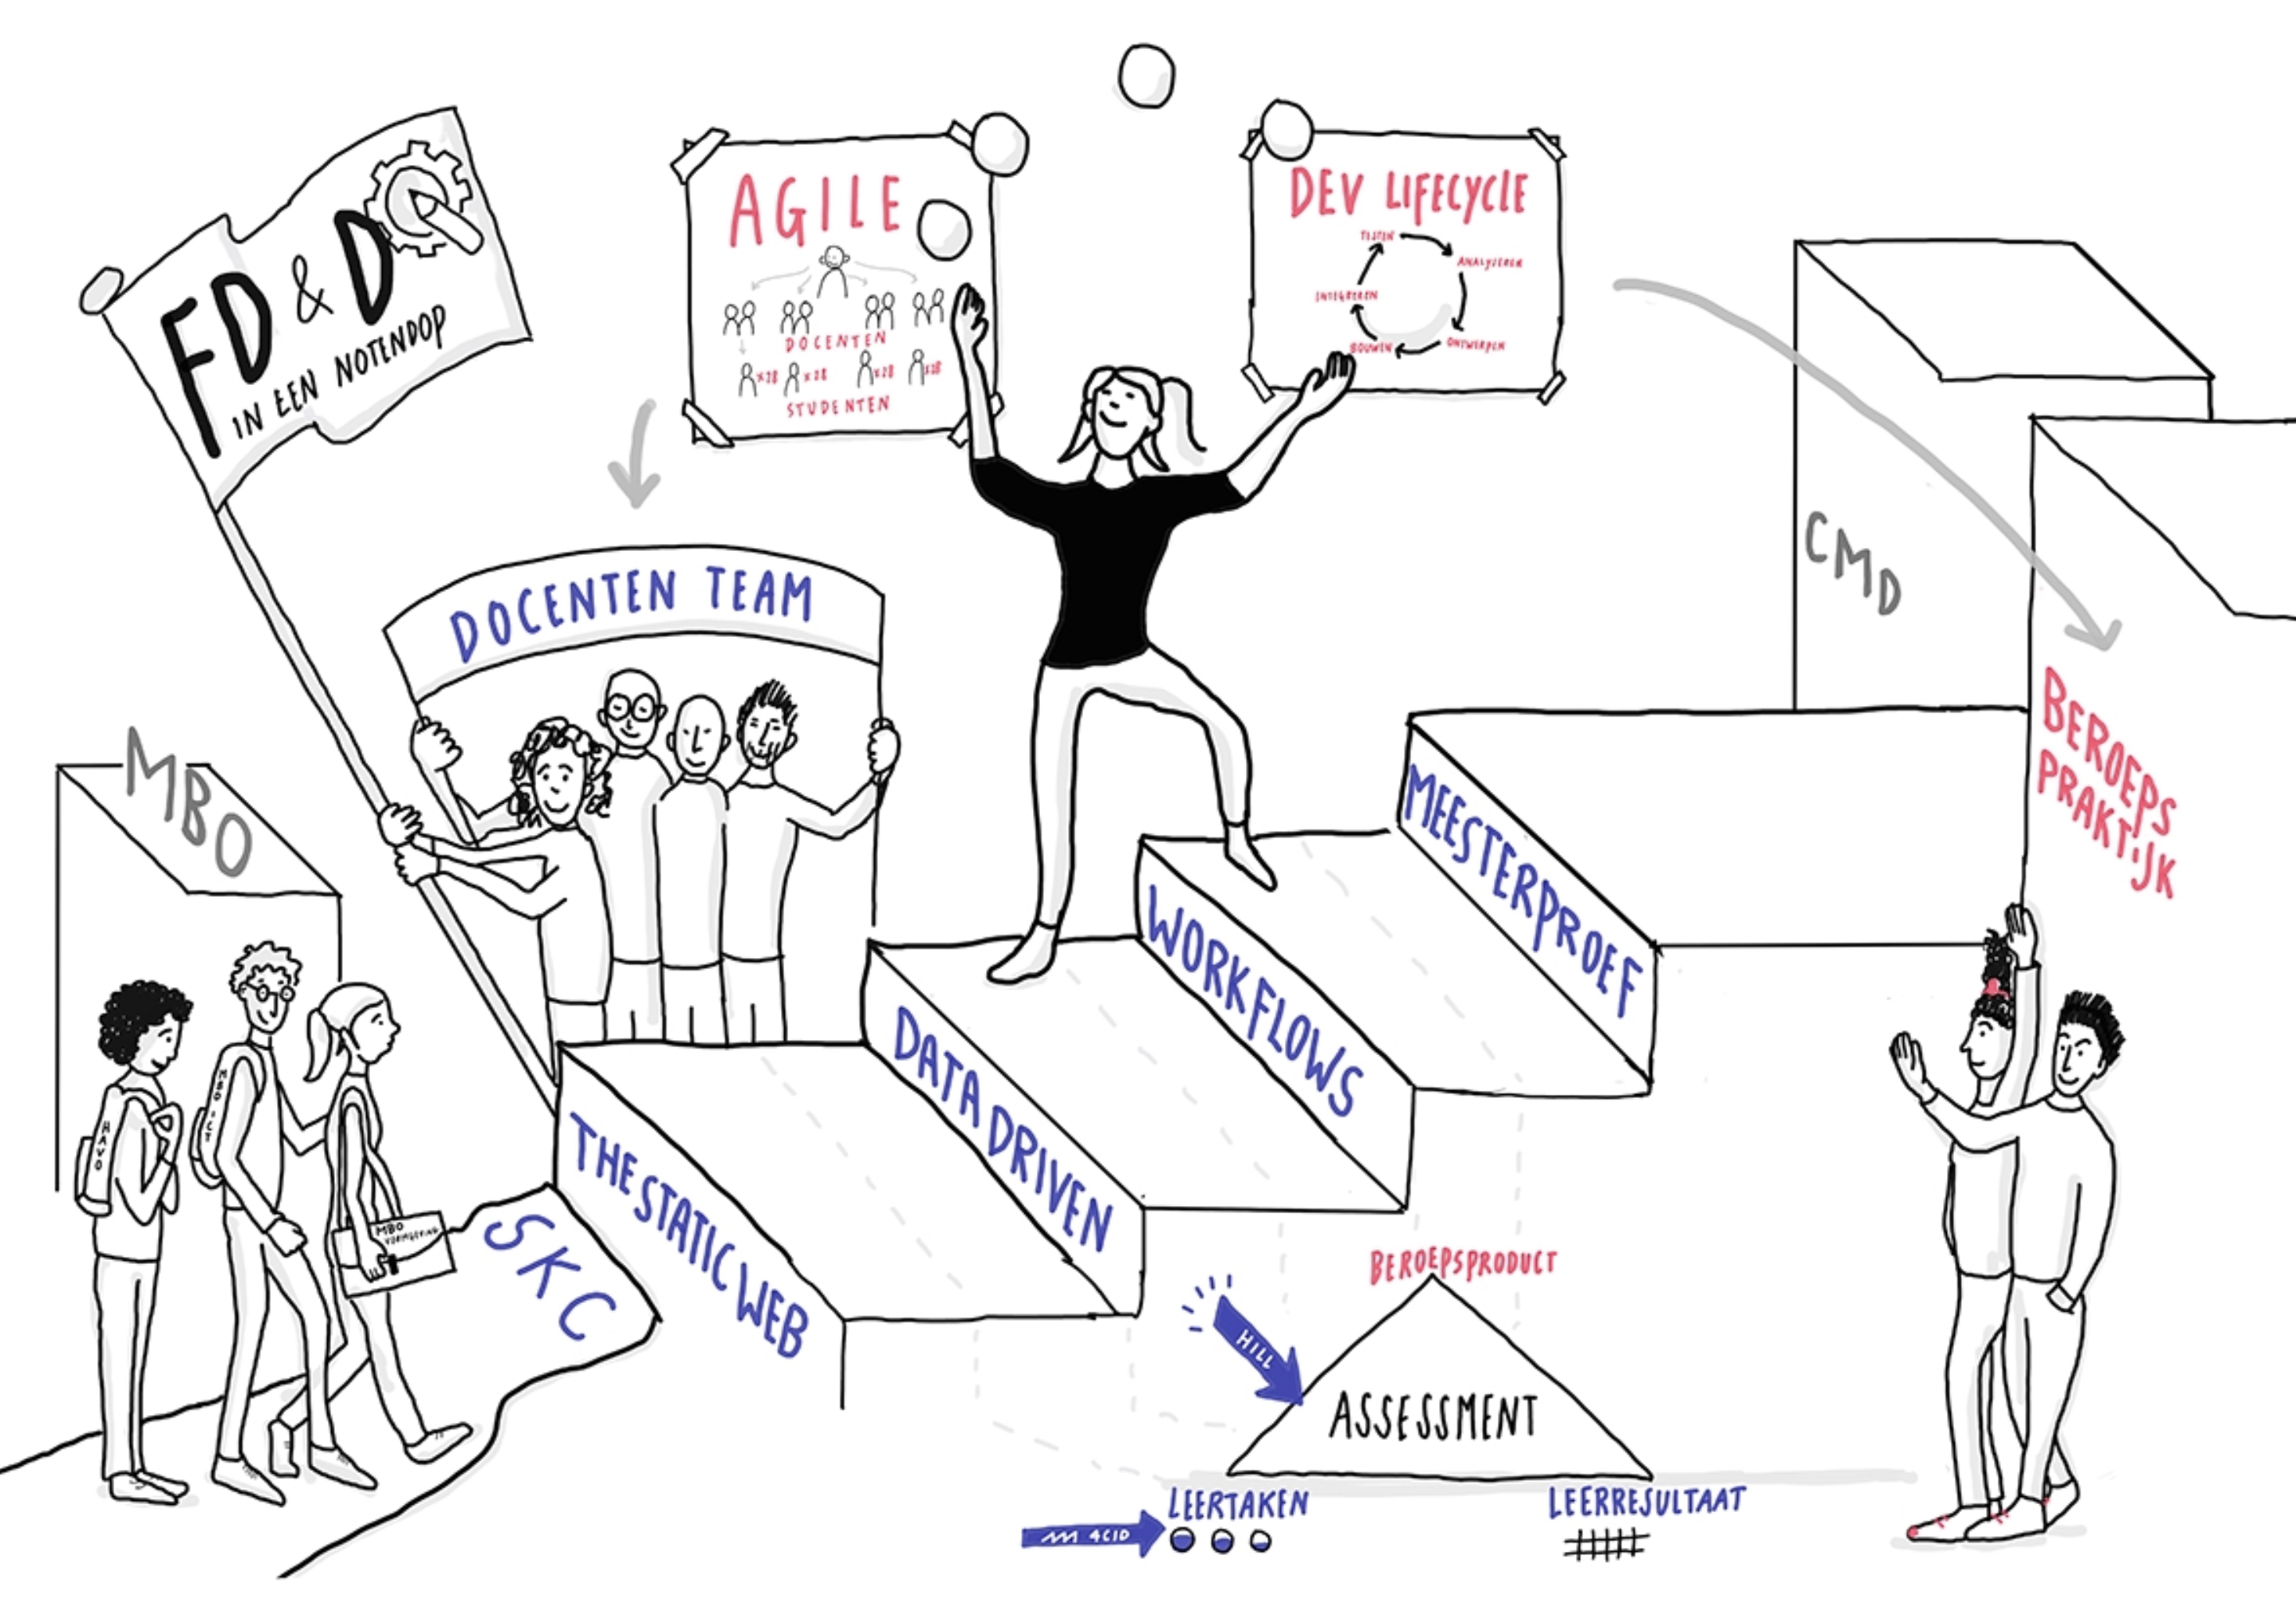 FD & D
IN EEN NOTENDOP
AGILE
DOCENTEN
x28 x28 x28 x28
STUDENTEN
DEV LIFECYCLE
TESTEN
ANALYSEREN
ONTWERPEN
BOUWEN
INTEGREREN
DOCENTEN TEAM
MBO
HAVO
MBO ICT
MBO
VORMGEVING
SKC
THE STATIC WEB
DATA DRIVEN
WORKFLOWS
MEESTERPROEF
CMD
BEROEPS
PRAKTIJK
BEROEPSPRODUCT
HILL
ASSESSMENT
LEERTAKEN
4CID
LEERRESULTAAT